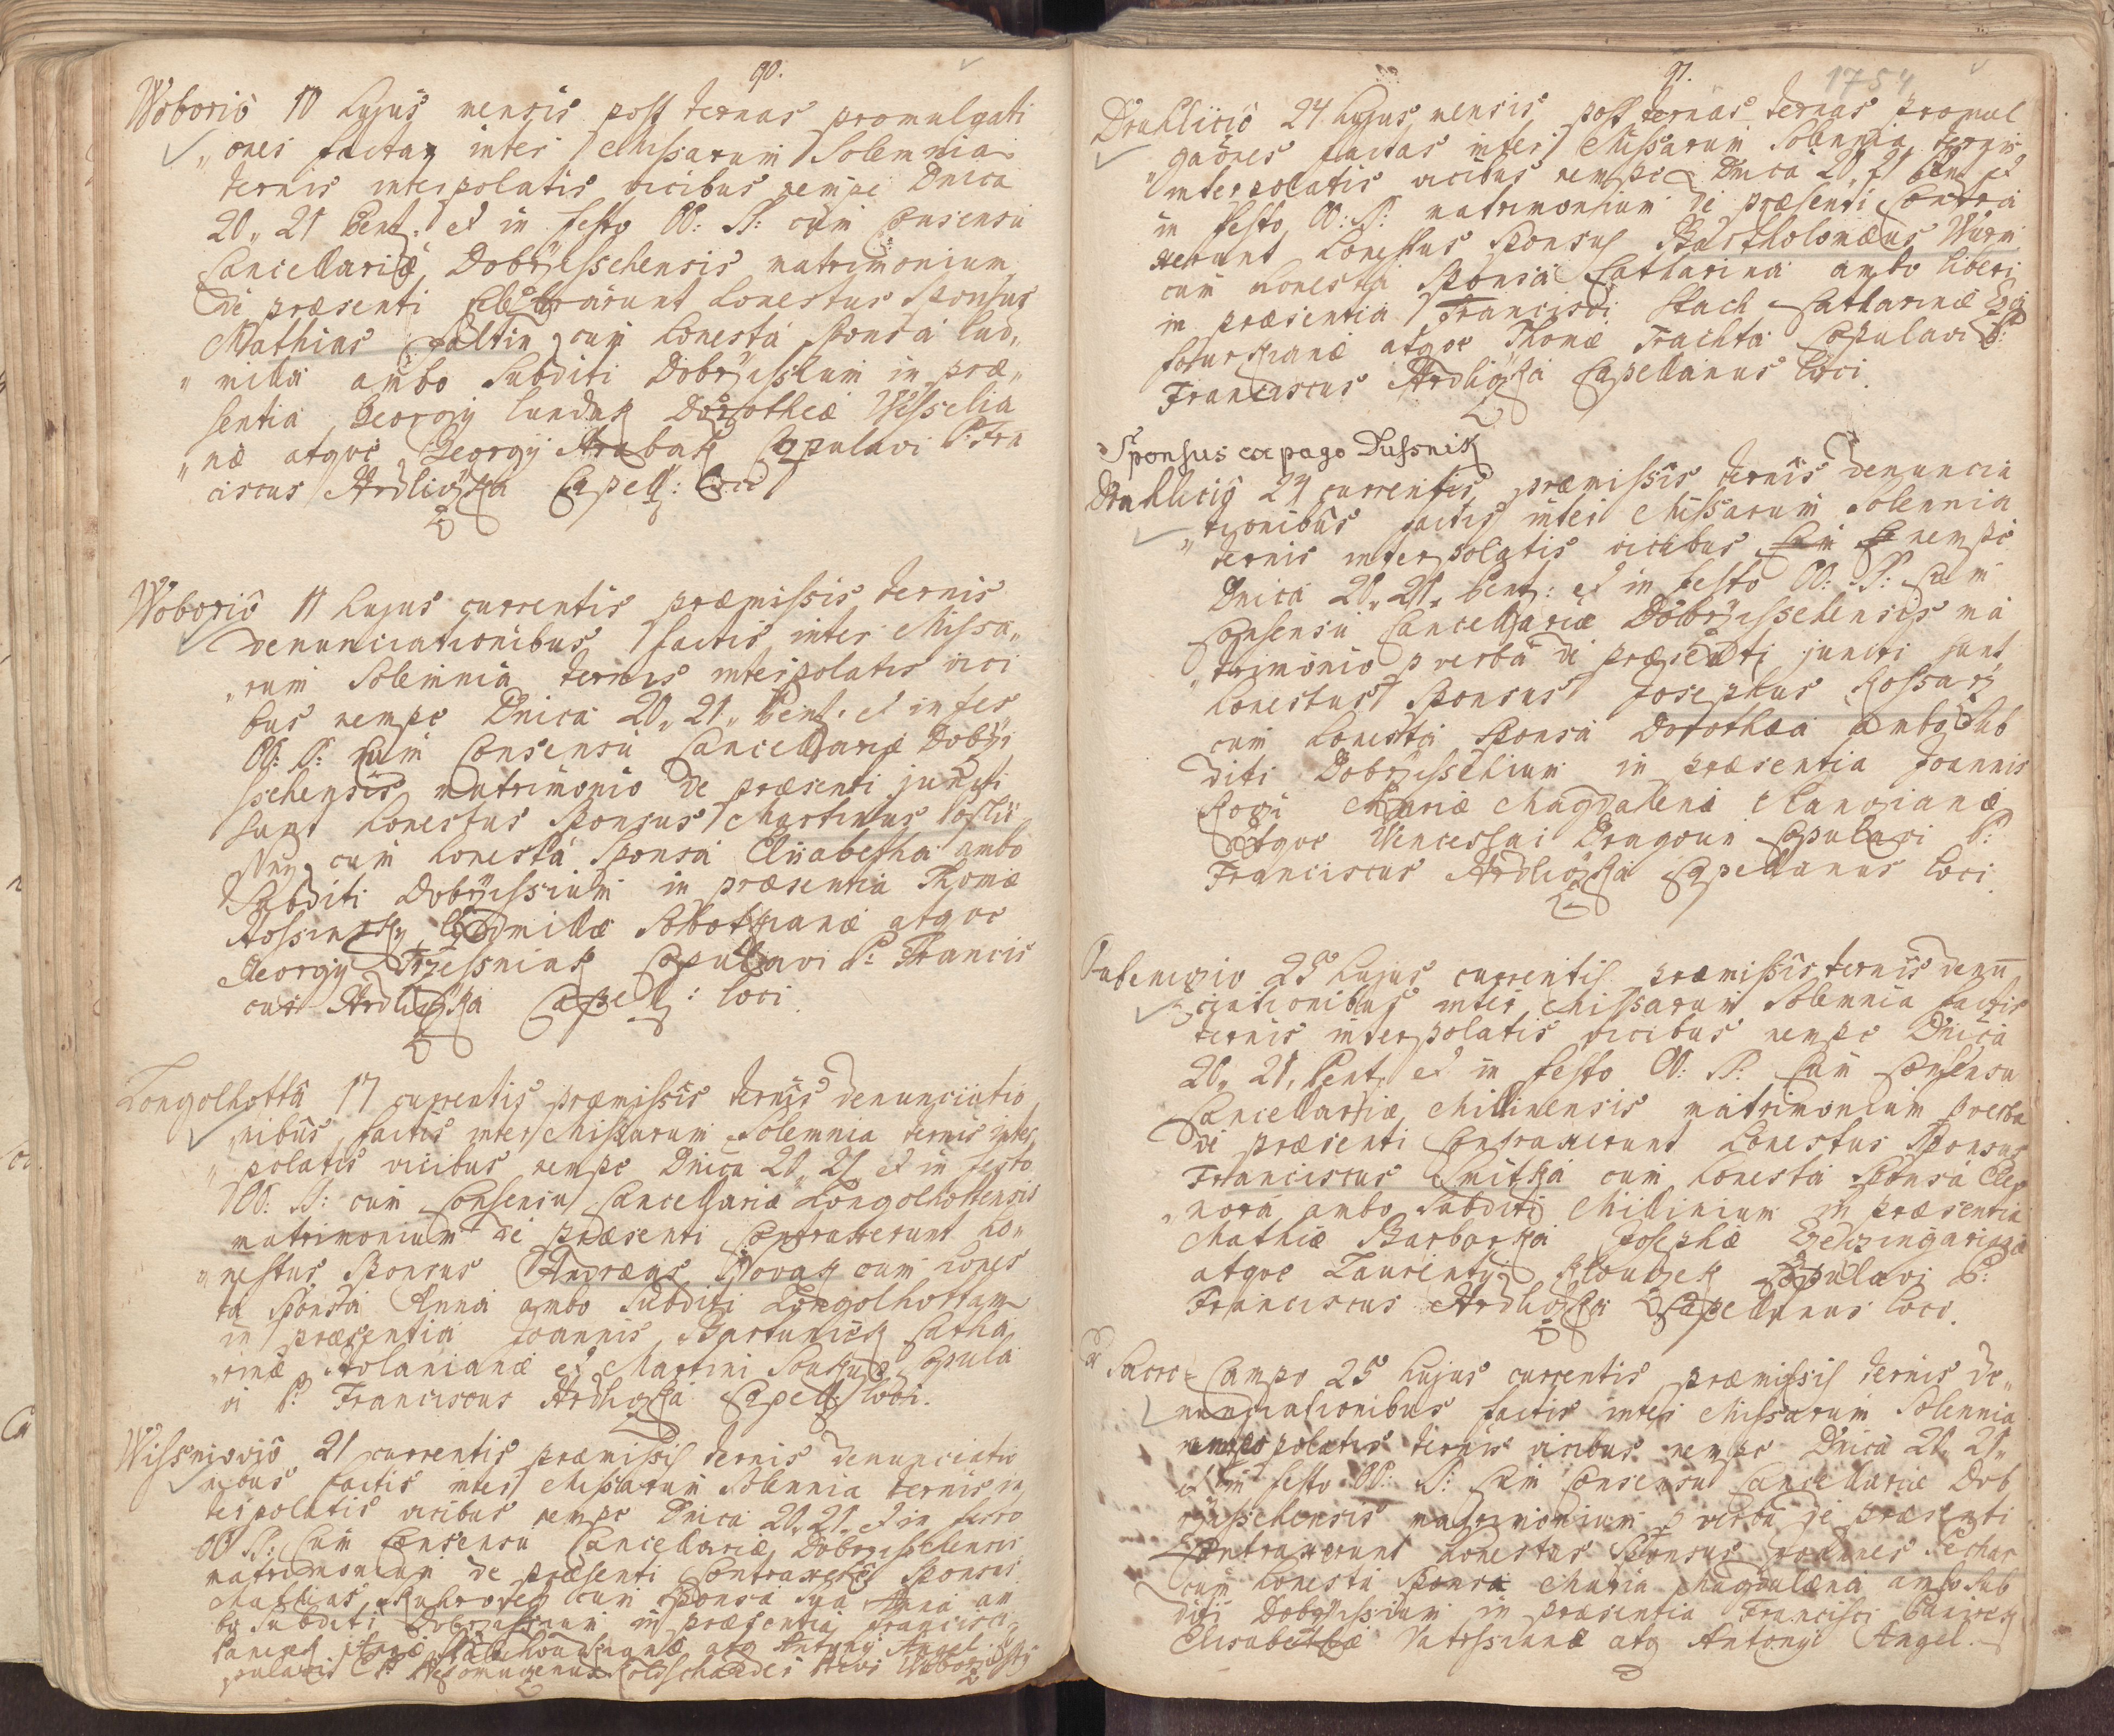 90.
Woboriô 11 hujus mensis post ternas promulgati
„ones factas inter Missarum Solemnia
ternis interpolatis vicibus nempe Dnica
20. 21 Pent: et in festo OO: SS: cum Consensu
Cancellariæ Dobrzisschensis matrimonium
de præsenti celebrarunt honestus Sponsus
Mathias Faltin cum honesta Sponsa Lud„
„milla ambo Subditi Dobrzisshum in præ„
sentia Georgij Lundak Dorotheæ Wesselia
„næ atque Georgij Hrabak Copulavi P: Fran
ciscus Hrdliczka Capell: Loci
Woboriô 11 hujus currentis præmissis ternis
denunciationibus factis inter Missa„
„rum Solemnia ternis interpolatis vici
bus nempe Dnica 20. 21. Pent. et in fes
OO: SS: cum Consensu Cancellariæ Dobrzi
sschensis matrimonio de præsenti juncti
sunt honestus Sponsus Martinus
cum honesta Sponsa Elisabetha ambo
Subditi Dobrzissium in præsentia Thomæ
Ludmillæ Sobotkianæ atque
Georgij Trzessniak Copulavi P: Francis
cus Hrdliczka Capell: loci.
Longolhotta 17 currentis præmissis ternis denunciatio
nibus factis inter Missarum Solemnia ternis inter
„polatis vicibus nempe Dnica 20. 21 et in festo
OO: SS: cum Consensu Cancellariæ Longolhottensis
matrimonium de præsenti Contraxerunt ho„
„nestus Sponsus Andræas Nowak cum hones
ta Sponsa Anna ambo Subditi Longolhottam
in præsentia Joannis Bartuniek Catha
„rinæ Stolanianæ et Martini Saukup Copula
vi P. Franciscus Hrdliczka Capell: loci.
Wissniowiô 21 currentis præmissis ternis denunciatio
nibus factis inter Missarum Solennia ternis in
terpolatis vicibus nempe Dnica 20. 21. et in festo
OO SS: Cum Consensu Cancellariæ Dobrzisschensis
matrimonium de præsenti Contraxerũ Sponsus
Mathias cum Sponsa Sua Anna am
bo Subditi Dobrzissium in præsentia Francisci
Annæ atq Antonij Angel
91.
1754
Druhliciô 24 hujus mensis post ternas ternas promul
„gaõnes factas inter Missarum Solennia ternis
interpolatis vicibus nempe Dnica 20. 21 Pent et
in festo OO: SS: matrimonium de præsenti Contra
xerunt honestus Sponsus Bartholomæus Wurm
cum honesta Sponsa Catharina ambo liberi
in præsentia Francisci Stach Catharinæ
atque Thomæ Trachta Copulavi P:
Franciscus Hrdliczka Capellanus loci.
Sponsus ex pago Dussnik
Druhliciô 24 currentis præmissis ternis denuncia
„tionibus factis inter Missarum Solennia
ternis interpolatis vicibus nempe
Dnica 20. 21. Pent: et in festo OO: SS: Cum
Consensu Cancellariæ Dobrzisschensis ma
„trimonio p verba de præsenti juncti sunt
honestus Sponsus Josephus Kossarz
cum honesta Sponsa Dorothæa ambo Sub
diti Dobrzisschium in præsentia Joannis
Mariæ Magdalenæ
atque Venceslai Dragoun Copulavi P:
Franciscus Hrdliczka Capellanus loci.
25 hujus currentis præmissis ternis denũ
ciationibus inter Missarum Solemnia factis
ternis interpolatis vicibus nempe Dnica
20. 21. Pent. et in festo OO: SS: Cum Consensu
Cancellariæ Millinensis matrimonium p verba
de præsenti Contraxerunt honestus Sponsus
Franciscus Smitka cum honesta Sponsa Eleo
„nora ambo Subditi Millinium in præsentia
Mathiæ Barborka Josephæ
atque Laurentij Kloudek Copulavi P:
Franciscus Hrdliczka Capellanus loci.
a Sacro-Campo 25 hujus currentis præmissis ternis de„
nunciationibus factis inter Missarum Solennia
interpolatis ternis vicibus nempe Dnica 20. 21.
et in festo OO: SS: Cum Consensu Cancellariæ Dob
rzisschensis matrimonium p verba de præsenti
Contraxerunt honestus Sponsus Joannes Pechar
cum honesta Sponsa Maria Magdalæna ambo Sub
diti Dobrzissium in præsentia Francisci
Elisabethæ atq Antonij Angel.